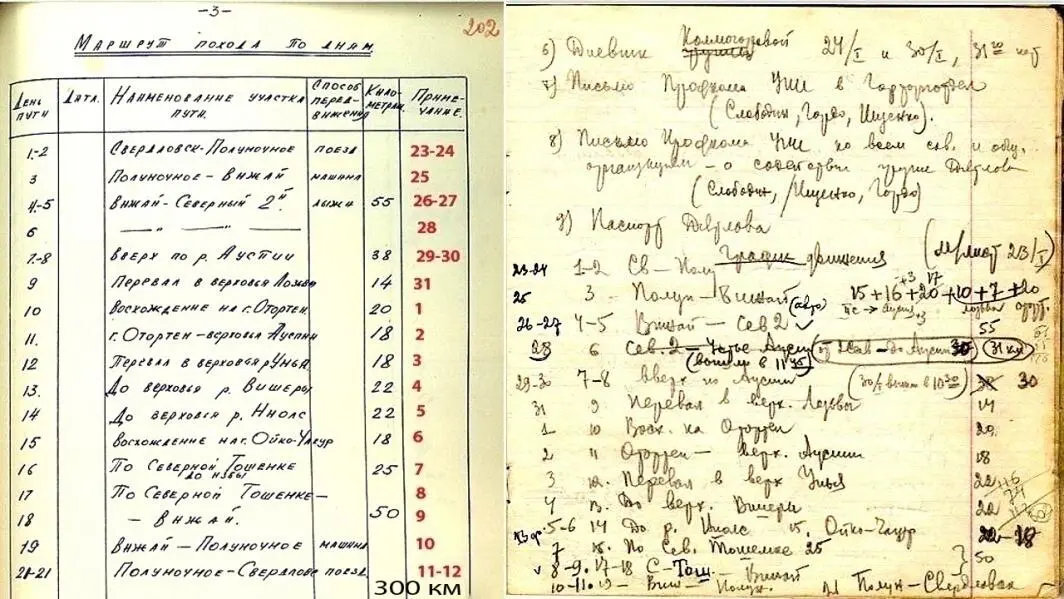 -3-
202
Маршрут похода по дням
День пути Дата. Наименование участка пути. Способ передвижения Километраж. Примечание.
1-2 Свердловск-Полуночное поезд 23-24
3 Полуночное-Вижай машина 25
4-5 Вижай-Северный 2й. лыжи 55 26-27
6 —"— —"— 28
7-8 Вверх по р. Ауспии 38 29-30
9 Перевал в верховья Лозьвы 14 31
10 Восхождение на г. Отортен 20 1
11 г. Отортен-верховья Ауспии 18 2
12 Перевал в верховья р. Унья 18 3
13. До верховья р. Вишеры 22 4
14 До верховья р. Ниолс 22 5
15 Восхождение на г. Ойко-Чакур 18 6
16 По Северной Тошемке до избы 25 7
17 По Северной Тошемке- 8
18 -Вижай. 50 9
19 Вижай-Полуночное машина 10
20-21 Полуночное-Свердловск поезд 11-12
300 км
6) Дневник Колмогоровой 24/I и 30/I, 31
7) Письмо Профкома УПИ в
(Слободин, Гордо, Ищенко).
8) Письмо Профкома УПИ ко всем сов. и общ.
организациям - о содействии группе Дятлова
(Слободин, /Ищенко, Гордо)
9) Паспорт Дятлова
График движения
23-24 1-2 Св-Полу
25 3 Полун-Вижай (авто) 15+16+20+10+7+20
26-27 4-5 Вижай-Сев 2 55
28 6 Сев. 2-Устье Ауспии 31 км
(вышли в 11 45)
29-30 7-8 вверх по Ауспии (30/I вышли в 10 30) 38 30
31 9 Перевал в верх. Лозьвы 14
1 10 Восх. на Отортен 20
2 11 Отортен - верх. Ауспии 18
3 12. Перевал в верх Унья 22
4 13. До верх. Вишеры 22
5-6 14 До р. Ниолс 15. Ойко-Чакур 22-18
7 По Сев. Тошемке 25
8-9. 17-18 С-Тош. - Вижай 50
10-11. 19- Виж - Полун. Полун-Свердловск